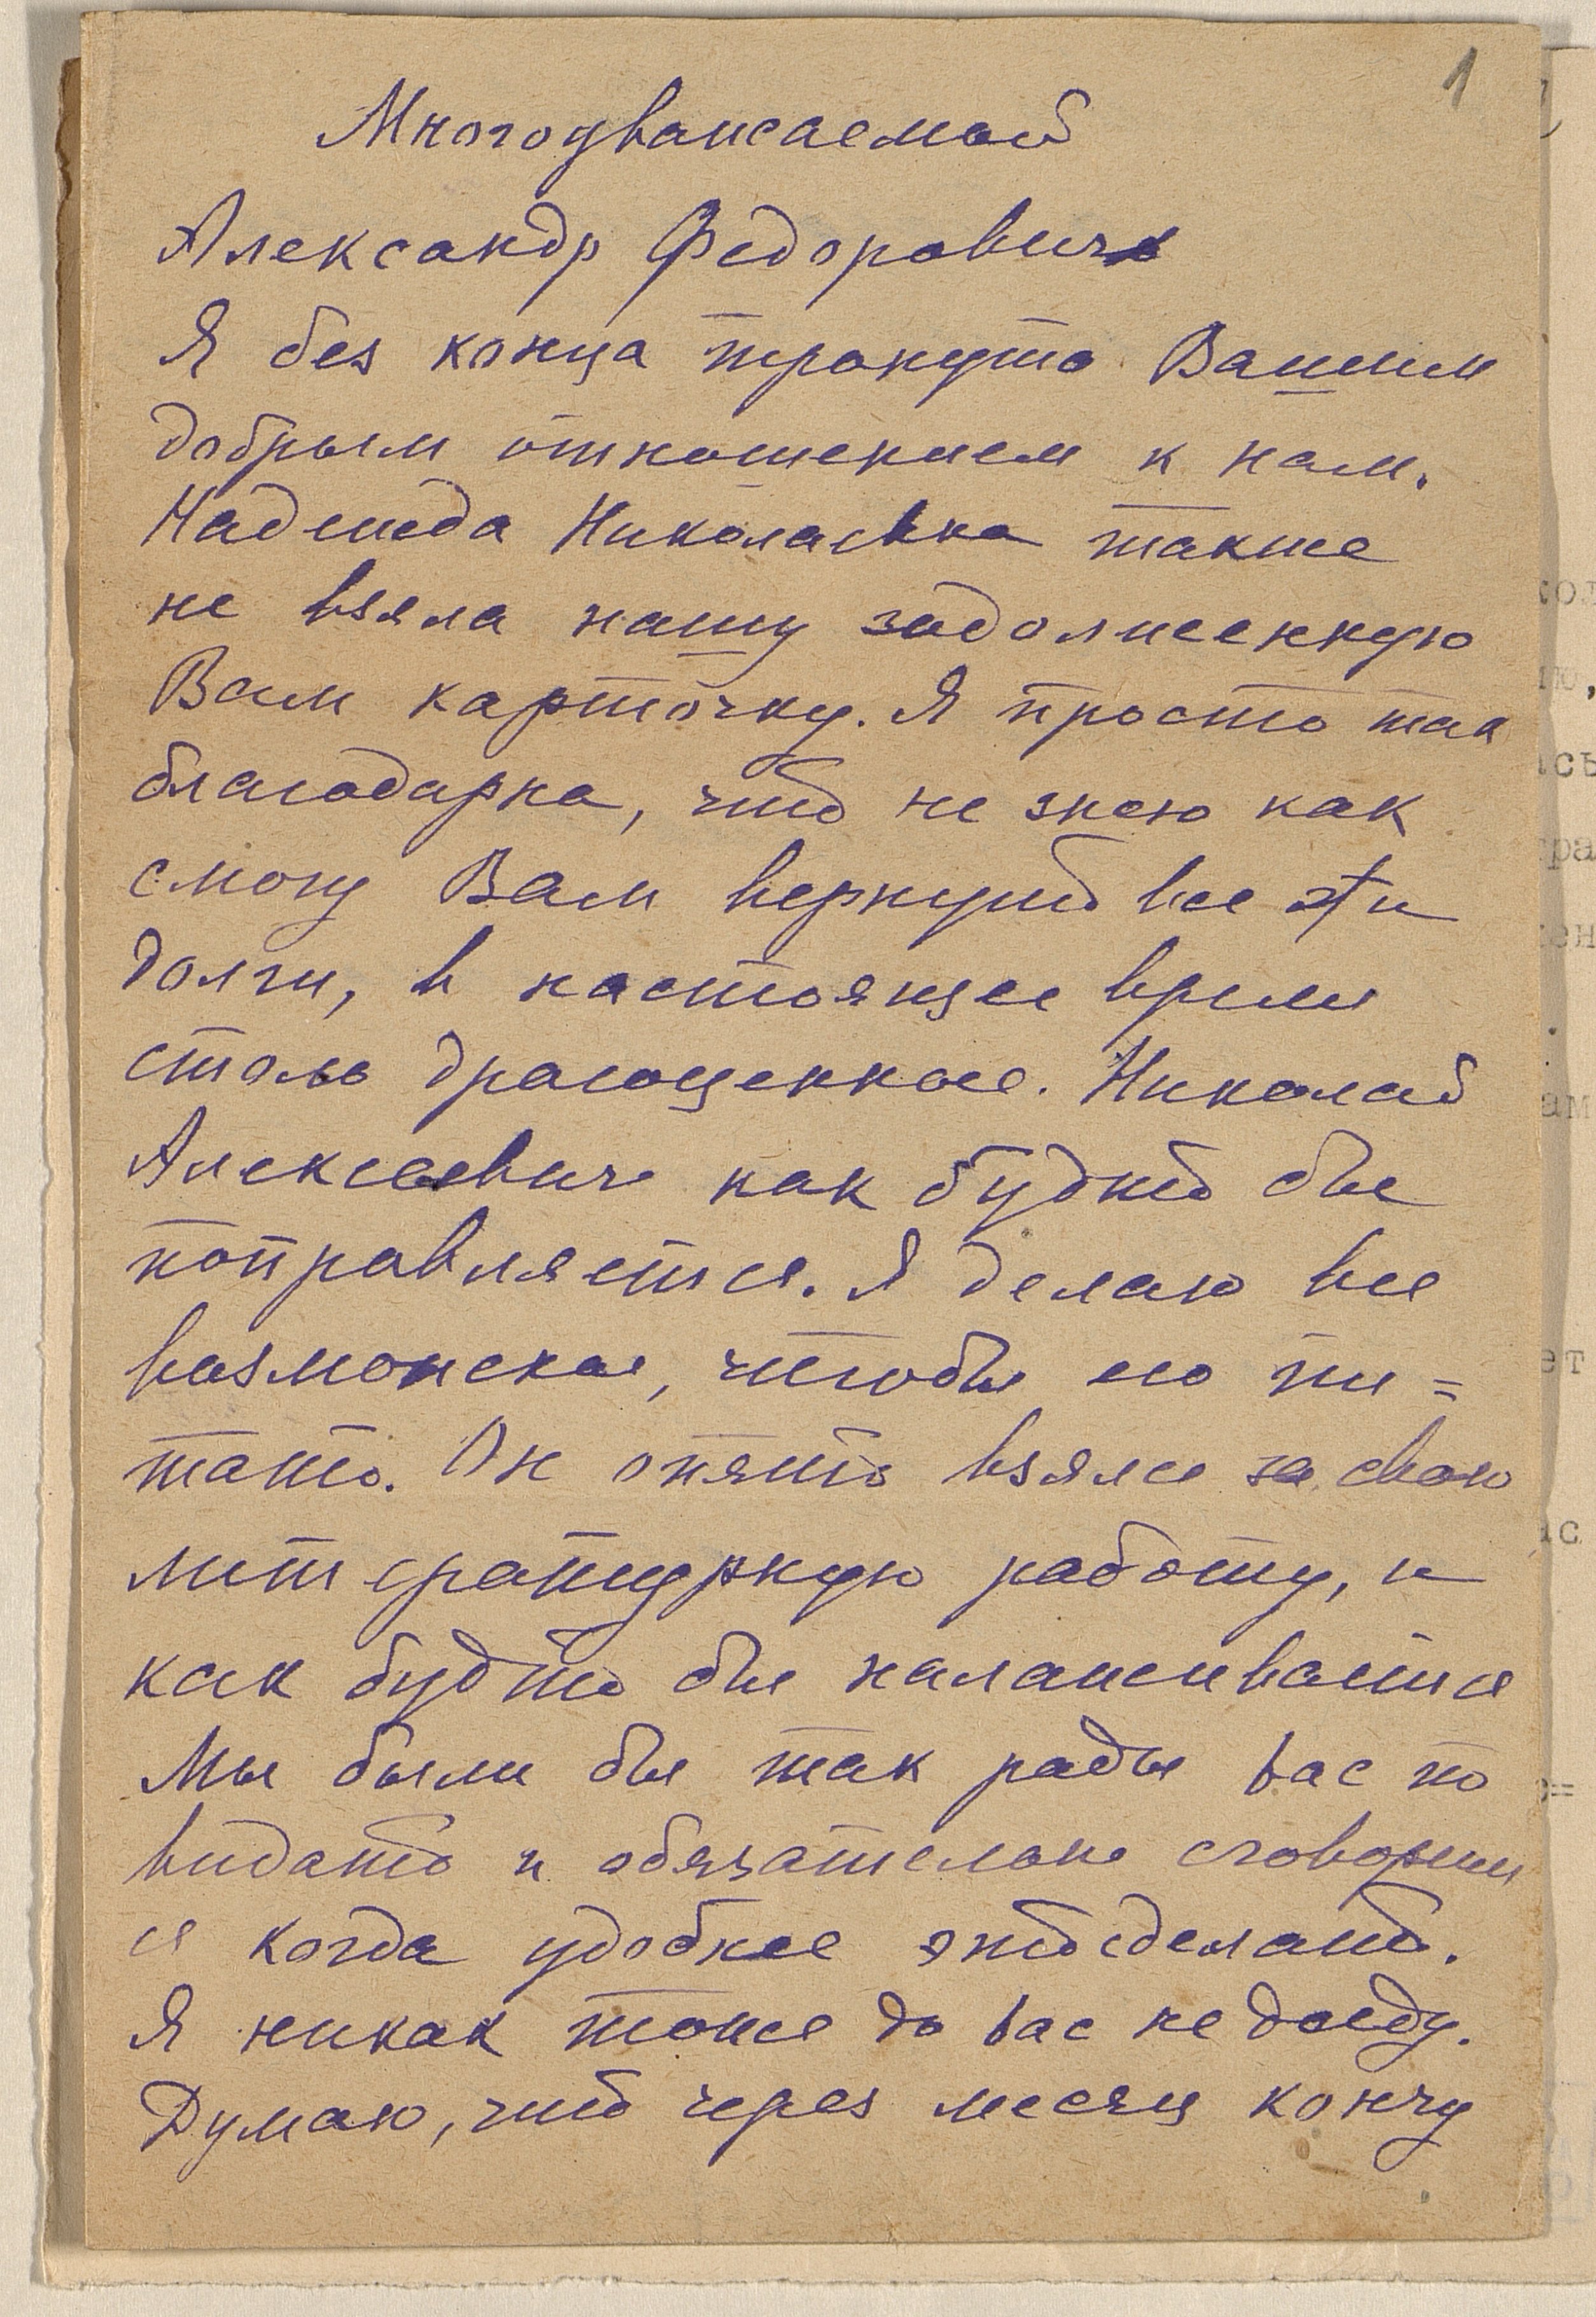 1
Многоуважаемый
Александр Федорович
Я без конца тронута Вашим
добрым отношением к нам.
Надежда Николаевна также
не взяла нашу задолженную
Вам карточку. Я просто так
благодарна, что не знаю как
смогу Вам вернуть все эти
долги, в настоящее время
столь драгоценное. Николай
Алексеевич как будто бы
поправляется. Я делаю все
возможное, чтобы его пи=
тать. Он опять взялся за свою
литературную работу, и
как будто бы налаживается
Мы были бы так рады вас по
видать и обязательно сговорим
ся когда удобнее это сделать.
Я никак тоже до вас не доеду.
Думаю, что через месяц кончу